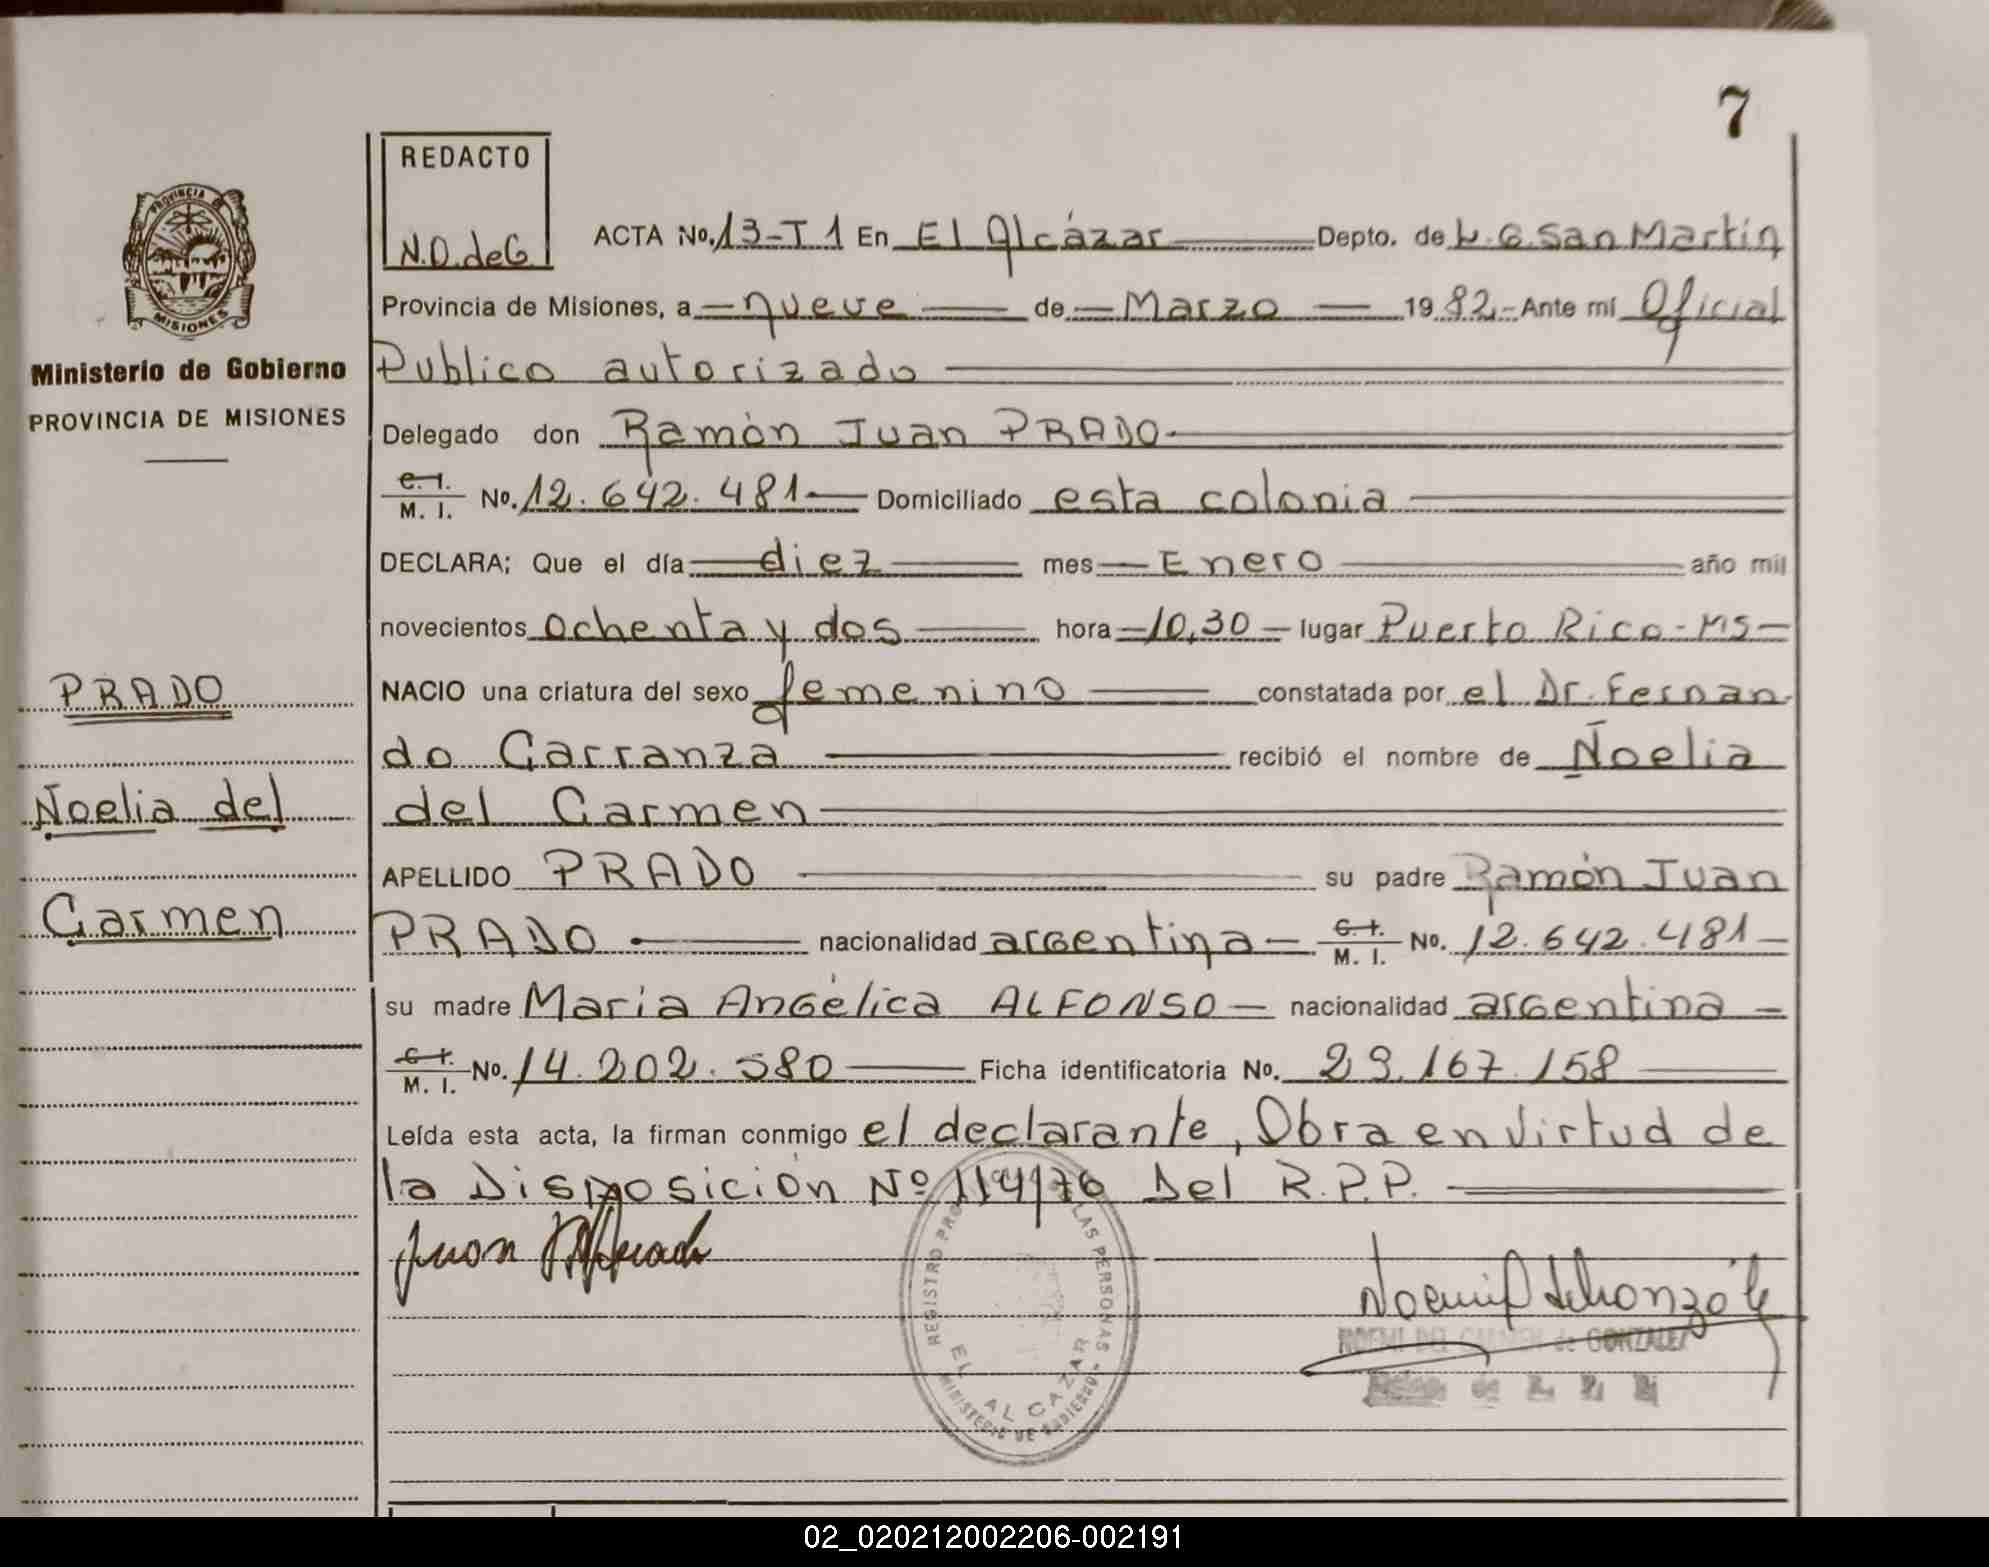 7
REDACTO
N.D.deG
ACTA No. 13-T 1 En El Alcázar Depto. de L.G. San Martin
Provincia de Misiones, a nueve de Marzo 1982.- Ante mí Oficial
Publico autorizado
Delegado don Ramón Juan PRADO
C. I. / M. I. No. 12.642.481 Domiciliado esta colonia
DECLARA; Que el día diez mes Enero año mil
novecientos ochenta y dos hora 10,30 lugar Puerto Rico - MS
NACIO una criatura del sexo femenino constatada por el Dr. Fernan
do Carranza recibió el nombre de Noelia
del Carmen
APELLIDO PRADO su padre Ramón Juan
PRADO nacionalidad argentina C. I. / M. I. No. 12.642.481
su madre Maria Angélica ALFONSO nacionalidad argentina
C. I. / M. I. No. 14.202.580 Ficha identificatoria No. 29.167.158
Leída esta acta, la firman conmigo el declarante, Obra en virtud de
la Disposición Nº 114/76 Del R.P.P.
PROVINCIA DE
MISIONES
Ministerio de Gobierno
PROVINCIA DE MISIONES
PRADO
Noelia del
Carmen
Juan Prado
REGISTRO LAS PERSONAS
EL ALCAZAR
MINISTERIO DE GOBIERNO
NOEMI DEL CARMEN de GONZALEZ
02_020212002206-002191